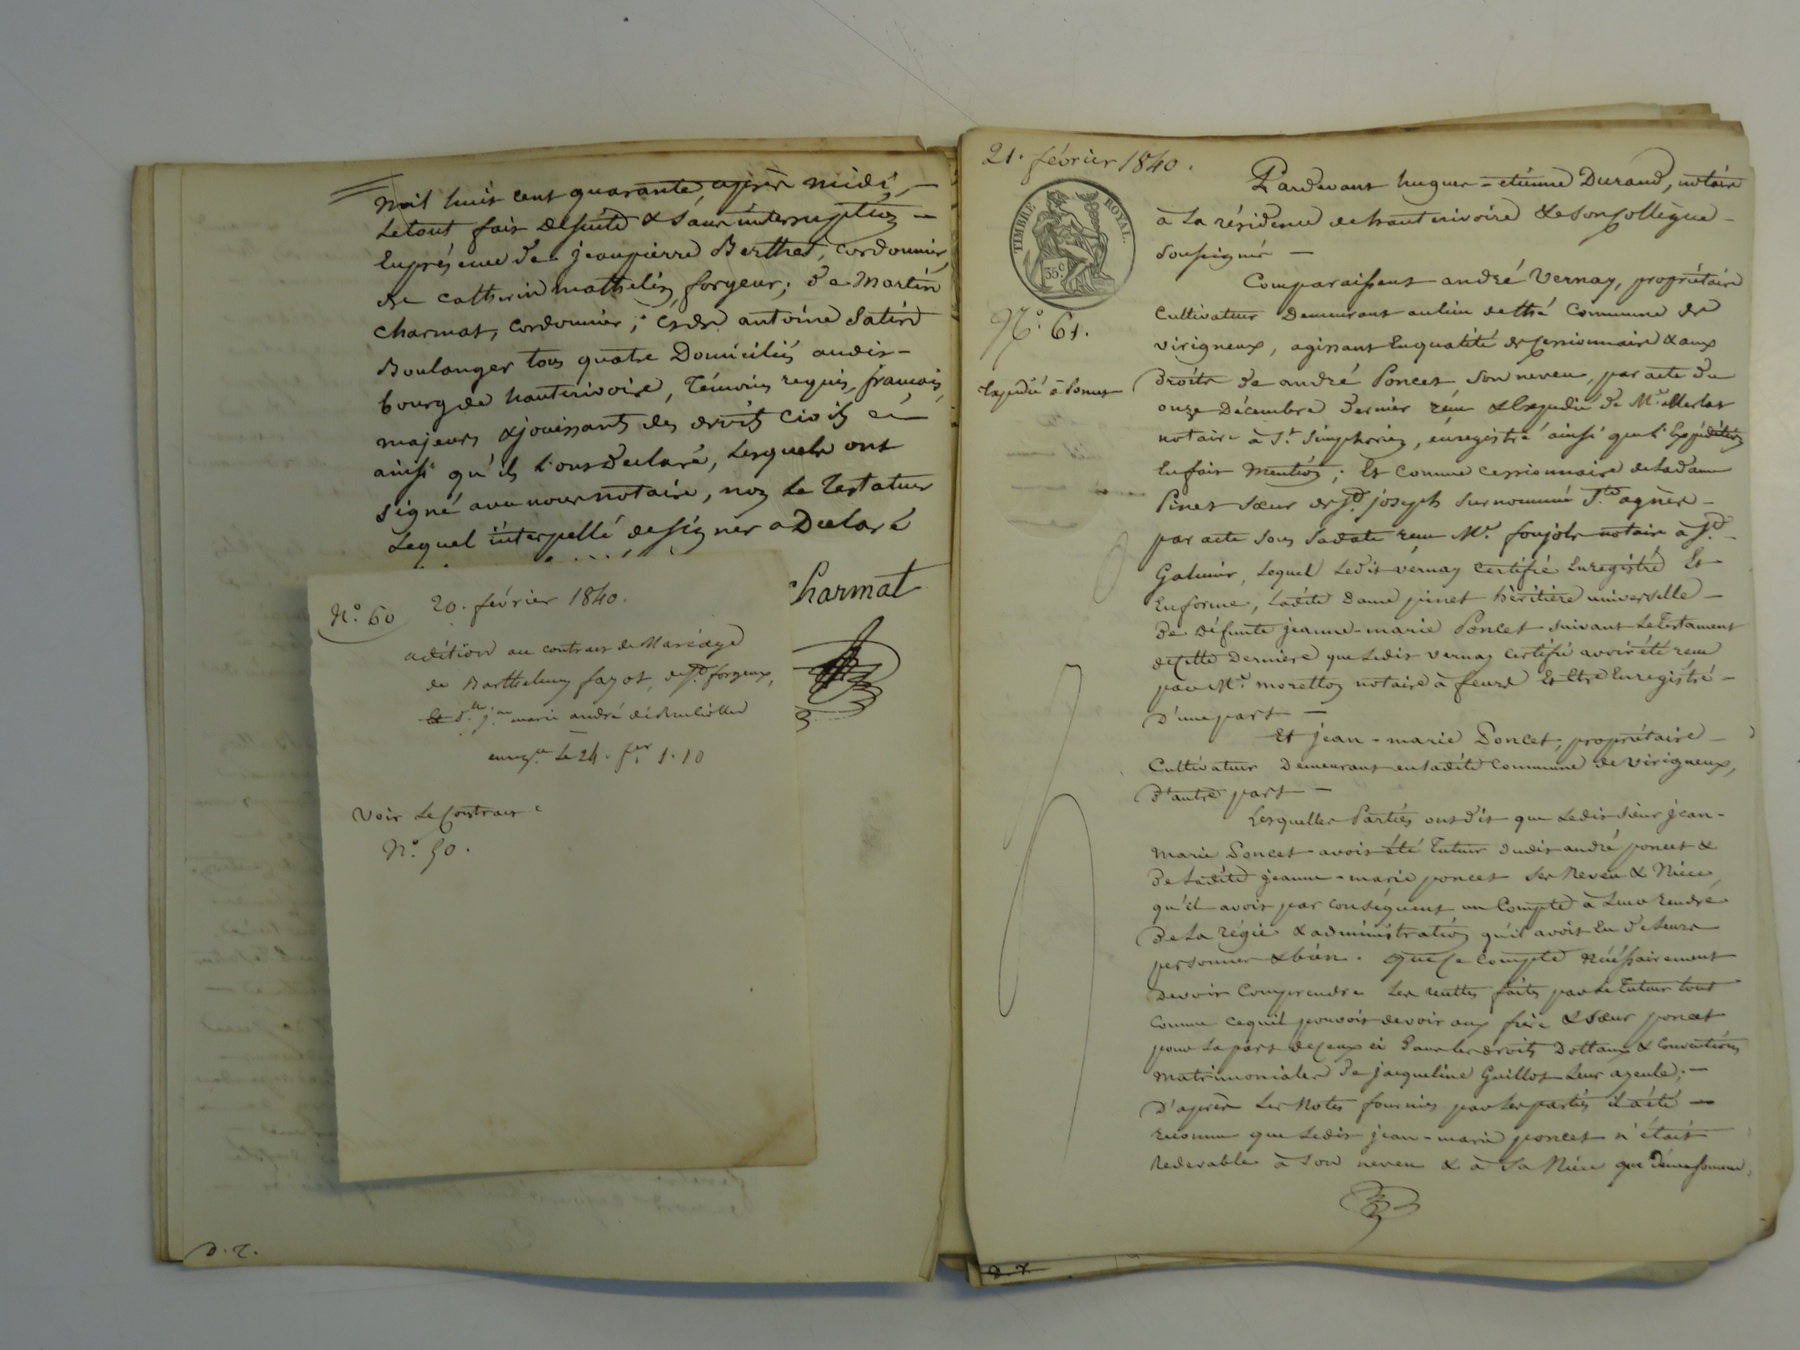 mil huit cent quarante, après midi, —
Le tout fait de suite & sans interruption —
En présence de jeanpierre Berthet, cordonnier,
de catherin mathelin, forgeur; de Martin
charmat, cordonnier; et de antoine Satin
Boulanger tous quatre Domiciliés audit-
bourg de hauterivoire, Témoins requis, francais,
majeurs & jouissants des droits civils
ainsi qu'ils l'ont déclaré, Lesquels ont
signé avec nous notaire, non Le Testateur
Lequel interpellé de signer a Declaré
charmat
N.° 60
20. février 1840.
adition au contrat de Mariage
de Barthelemy fayot, de
Et d.lle j.ne marie andré
enreg.ré Le 24. f.er 1.10
Voir Le Contrat
N.° 50.
D. 2.
21. février 1840.
TIMBRE ROYAL.
35 c
N.° 61.
Expédié à Poncet
Pardevant hugues-etienne Durand, notaire
à La résidence de hauterivoire & de son Collègue -
Soussignés —
Comparaissent andré Vernay, propriétaire
Cultivateur Demeurant au lieu de thé Commune de
virigneux, agissant En qualité de Cessionnaire & aux
Droits de andré Poncet Son neveu, par acte du
onze Décembre Dernier recu & Expédié de M.e
notaire à S.t Simphorien, enregistré ainsi que L'Expédition
En fait Mention; Et comme cessionnaire de La dame
Pinet Sœur de S.t joseph Surnommée S.te agnès -
par acte Sous Sa date recu M.e foujols notaire à S.t
Galmier, Lequel Ledit vernay Certifie Enregistré Et
En forme, Ladite Dame pinet héritière universelle -
De Défunte jeanne-marie Poncet suivant Le Testament
de Cette Dernière que Ledit vernay certifie avoir été recu
par M.e morellon notaire à feurs Et Etre Enregistré -
D'une part —
Et jean-marie Poncet, propriétaire -
Cultivateur Demeurant en Ladite Commune de Virigneux,
D'autre part —
Lesquelles Parties ont dit que Ledit Sieur jean-
Marie Poncet avoit été Tuteur dudit andré poncet &
De Ladite jeanne-marie poncet Ses Neveu & Nièce,
qu'il avoit par conséquent un Compte à Leur Rendre
De La régie & administration qu'il avoit Eu de Leurs
personnes & bien. que Ce compte Nécessairement
Devoir Comprendre Les recettes faites par Le Tuteur tout
Comme cequil pouvoit devoir aux frère & Sœur poncet
pour La part de Ceux ci Dans Les droits Dottaux & Conventions
Matrimoniales De jacqueline Guillot Leur ayeule; —
D'après Les Notes fournies par Les parties il a été —
reconnu que Ledit jean-marie poncet n'était
redevable à Son neveu & à Sa Nièce que D'une Somme